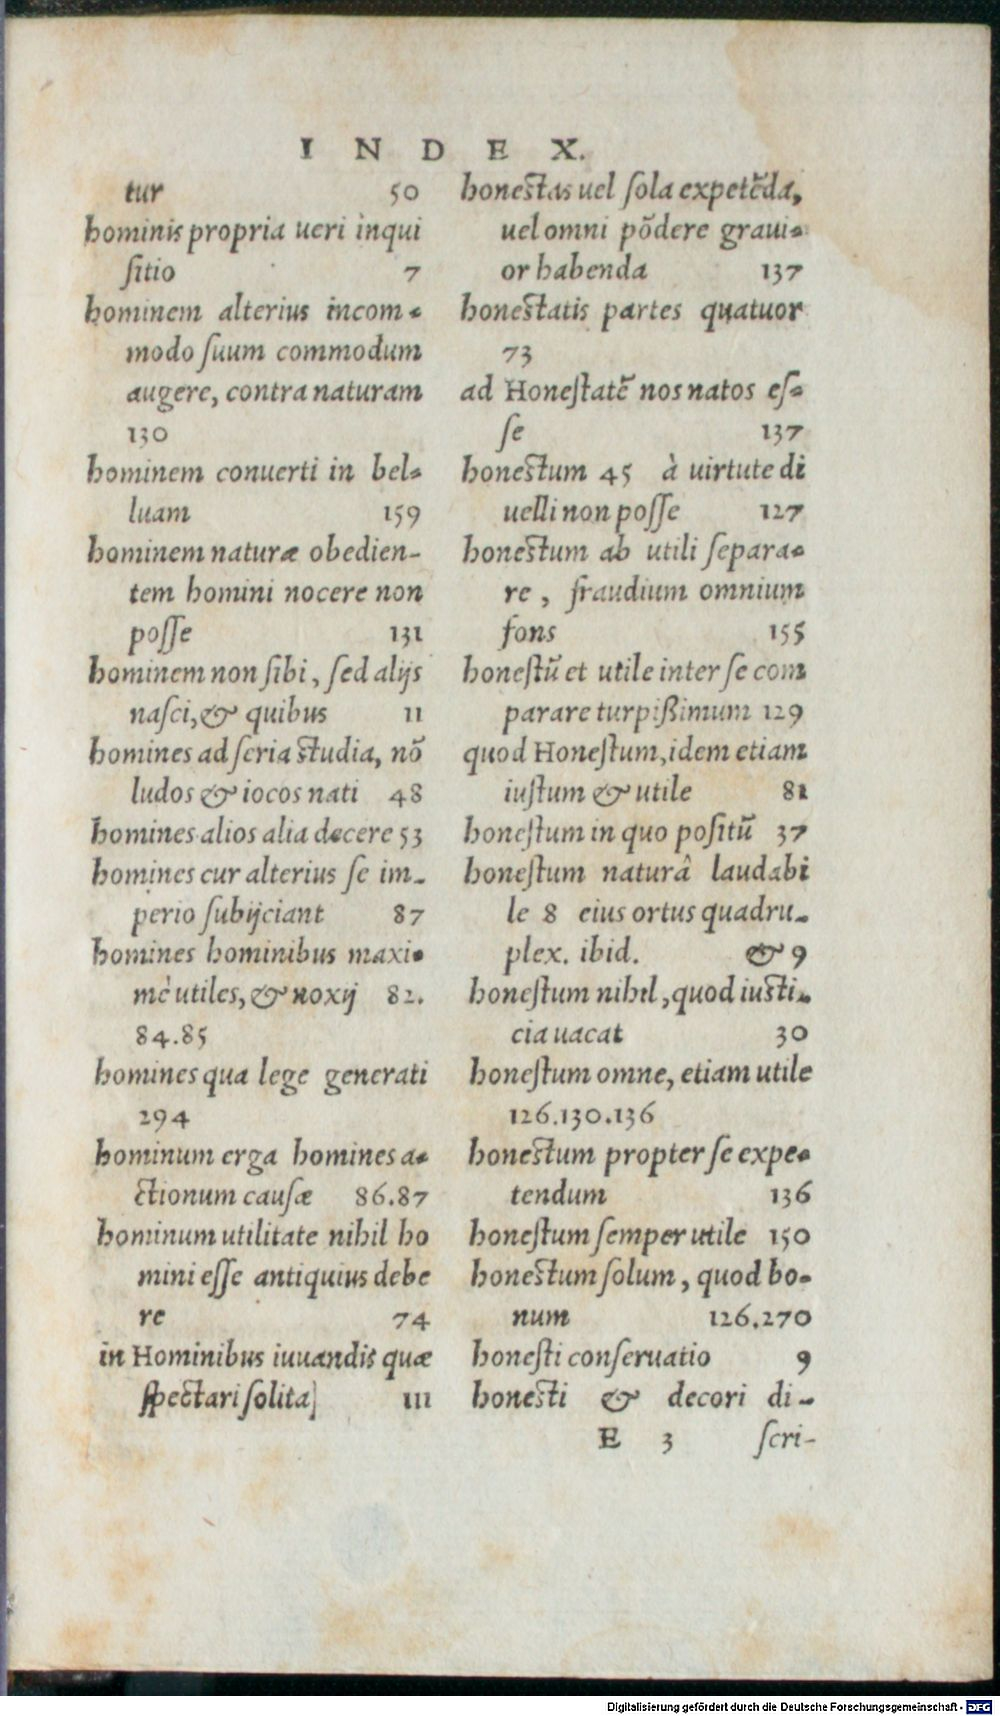 INDEX.
tur 50
hominis propria ueri inqui
sitio 7
hominem alterius incom-
modo suum commodum
augere, contra naturam
130
hominem conuerti in bel-
luam 159
hominem naturæ obedien-
tem homini nocere non
posse 131
hominem non sibi, sed alijs
nasci, & quibus 11
homines ad seria studia, nō
ludos & iocos nati 48
homines alios alia decere 53
homines cur alterius se im-
perio subijciant 87
homines hominibus maxi-
mè utiles, & noxij 82.
84.85
homines qua lege generati
294
hominum erga homines a-
ctionum causæ 86.87
hominum utilitate nihil ho
mini esse antiquius debe
re 74
in Hominibus iuuandis quæ
spectari solita] 111
honestas uel sola expetēda,
uel omni pōdere graui-
or habenda 137
honestatis partes quatuor
73
ad Honestatē nos natos es-
se 137
honestum 45 à uirtute di
uelli non posse 127
honestum ab utili separa-
re, fraudium omnium
fons 155
honestū et utile inter se com
parare turpißimum 129
quod Honestum, idem etiam
iustum & utile 81
honestum in quo positū 37
honestum naturâ laudabi
le 8 eius ortus quadru-
plex. ibid. & 9
honestum nihil, quod iusti-
cia uacat 30
honestum omne, etiam utile
126.130.136
honestum propter se expe-
tendum 136
honestum semper utile 150
honestum solum, quod bo-
num 126.270
honesti conseruatio 9
honesti & decori di-
E 3 scri-
Digitalisierung gefördert durch die Deutsche Forschungsgemeinschaft - DFG